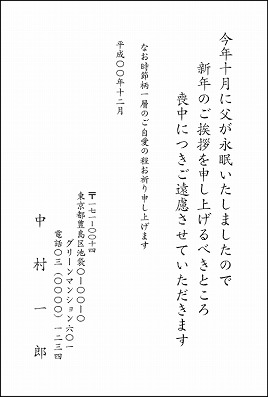 今年十月に父が永眠いたしましたので
新年のご挨拶を申し上げるべきところ
喪中につきご遠慮させていただきます
なお時節柄一層のご自愛の程お祈り申し上げます
平成〇〇年十二月
〒一七一-〇〇一四
東京都豊島区池袋〇-〇〇-〇
グリーンマンション六〇一
電話〇三(〇〇〇〇)一二三四
中村一郎